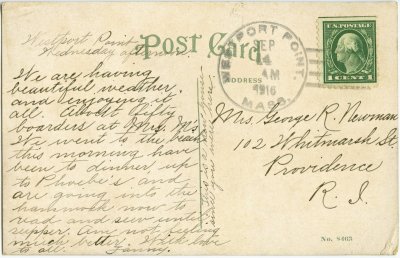 Westport Point
Wednesday afternoon
We are having
beautiful weather
and enjoying it
all. About fifty
boarders at Mrs. M's
We went to the beach
this morning have
been to dinner, up
to Phoebe's, and
are going into the
hammock now to
read and sew until
supper. Am feeling
much better. With love
to all. Fanny.
This is a
since you were here
Post Card
ADDRESS
WESTPORT POINT,
SEP
4
AM
1916
MASS.
U.S. POSTAGE
1 CENT 1
Mrs. George R. Newman
102 Whitmarsh St.
Providence
R. I.
No. 8463